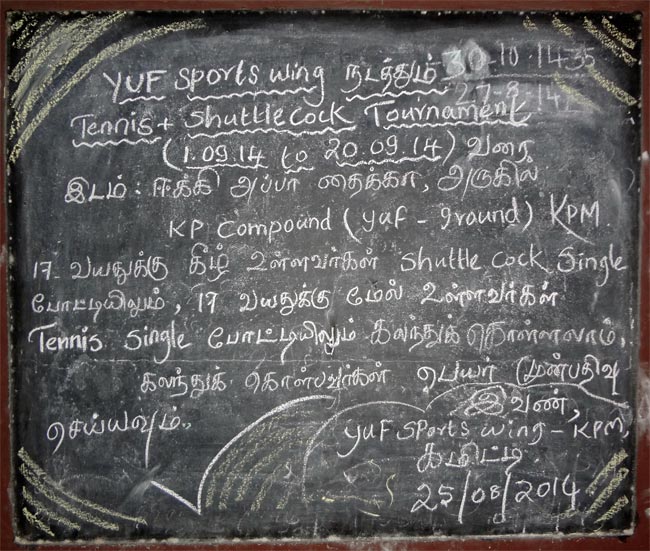 YUF Sports wing நடத்தும் 30-10-14-35
27-8-14
Tennis + Shuttlecock Tournament
(1.09.14 to 20.09.14) வரை
இடம் : ஈக்கி அப்பா தைக்கா, அருகில்
KP Compound (yuf - ground) KPM
17 வயதுக்கு கீழ் உள்ளவர்கள் Shuttle cock Single
போட்டியிலும், 17 வயதுக்கு மேல் உள்ளவர்கள்
Tennis Single போட்டியிலும் கலந்துக் கொள்ளலாம்,
கலந்துக் கொள்பவர்கள் பெயர் முன்பதிவு
செய்யவும்.
இவண்,
YUF SPorts wing - KPM,
கமிட்டி.
25/08/2014